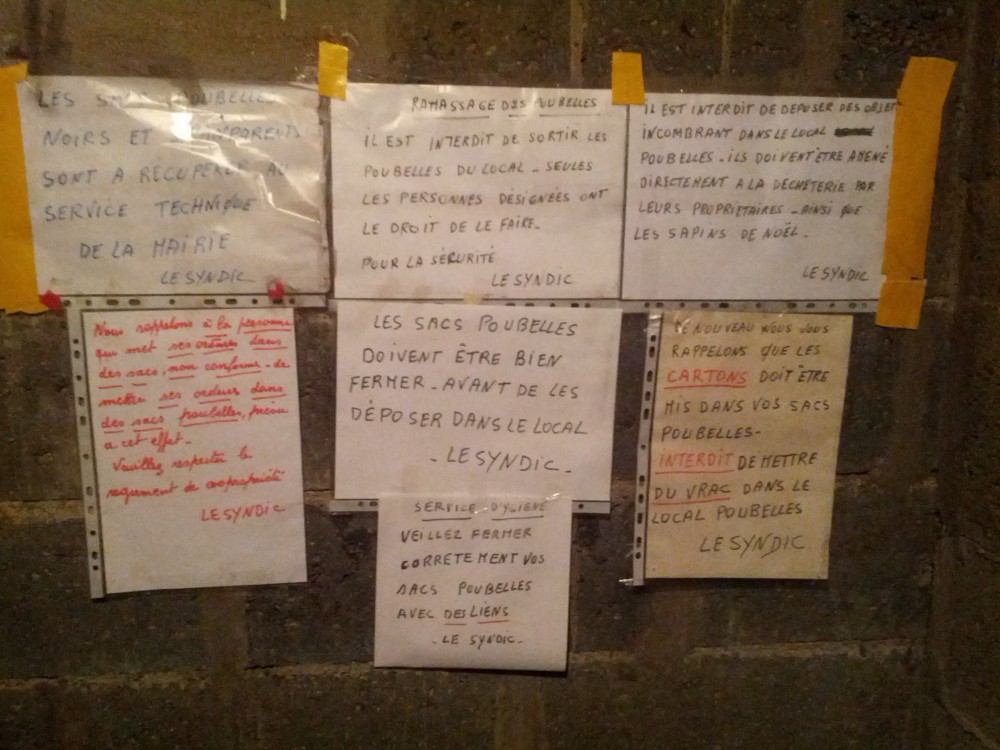 LES SACS POUBELLES
NOIRS ET TRANSPARENTS
SONT A RÉCUPERER AU
SERVICE TECHNIQUE
DE LA MAIRIE
LE SYNDIC
RAMASSAGE DES POUBELLES
IL EST INTERDIT DE SORTIR LES
POUBELLES DU LOCAL - SEULES
LES PERSONNES DÉSIGNÉES ONT
LE DROIT DE LE FAIRE -
POUR LA SÉCURITÉ
LE SYNDIC
IL EST INTERDIT DE DEPOSER DES OBJET
INCOMBRANT DANS LE LOCAL
POUBELLES - ILS DOIVENT ÊTRE AMENÉ
DIRECTEMENT A LA DECHETERIE PAR
LEURS PROPRIETAIRES - AINSI QUE
LES SAPINS DE NOËL -
LE SYNDIC
Nous rappelons à la personne
qui met ses ordures dans
des sacs, non conforme - de
mettre ses ordures dans
des sacs poubelles, prévu
a cet effet -
Veuillez respecter le
reglement de copropriété
LE SYNDIC
LES SACS POUBELLES
DOIVENT ÊTRE BIEN
FERMER - AVANT DE LES
DÉPOSER DANS LE LOCAL
- LE SYNDIC -
DE NOUVEAU NOUS VOUS
RAPPELONS QUE LES
CARTONS DOIT ÊTRE
MIS DANS VOS SACS
POUBELLES -
INTERDIT DE METTRE
DU VRAC DANS LE
LOCAL POUBELLES
LE SYNDIC
SERVICE D'YGIENE
VEILLEZ FERMER
CORRETEMENT VOS
SACS POUBELLES
AVEC DES LIENS
- LE SYNDIC -